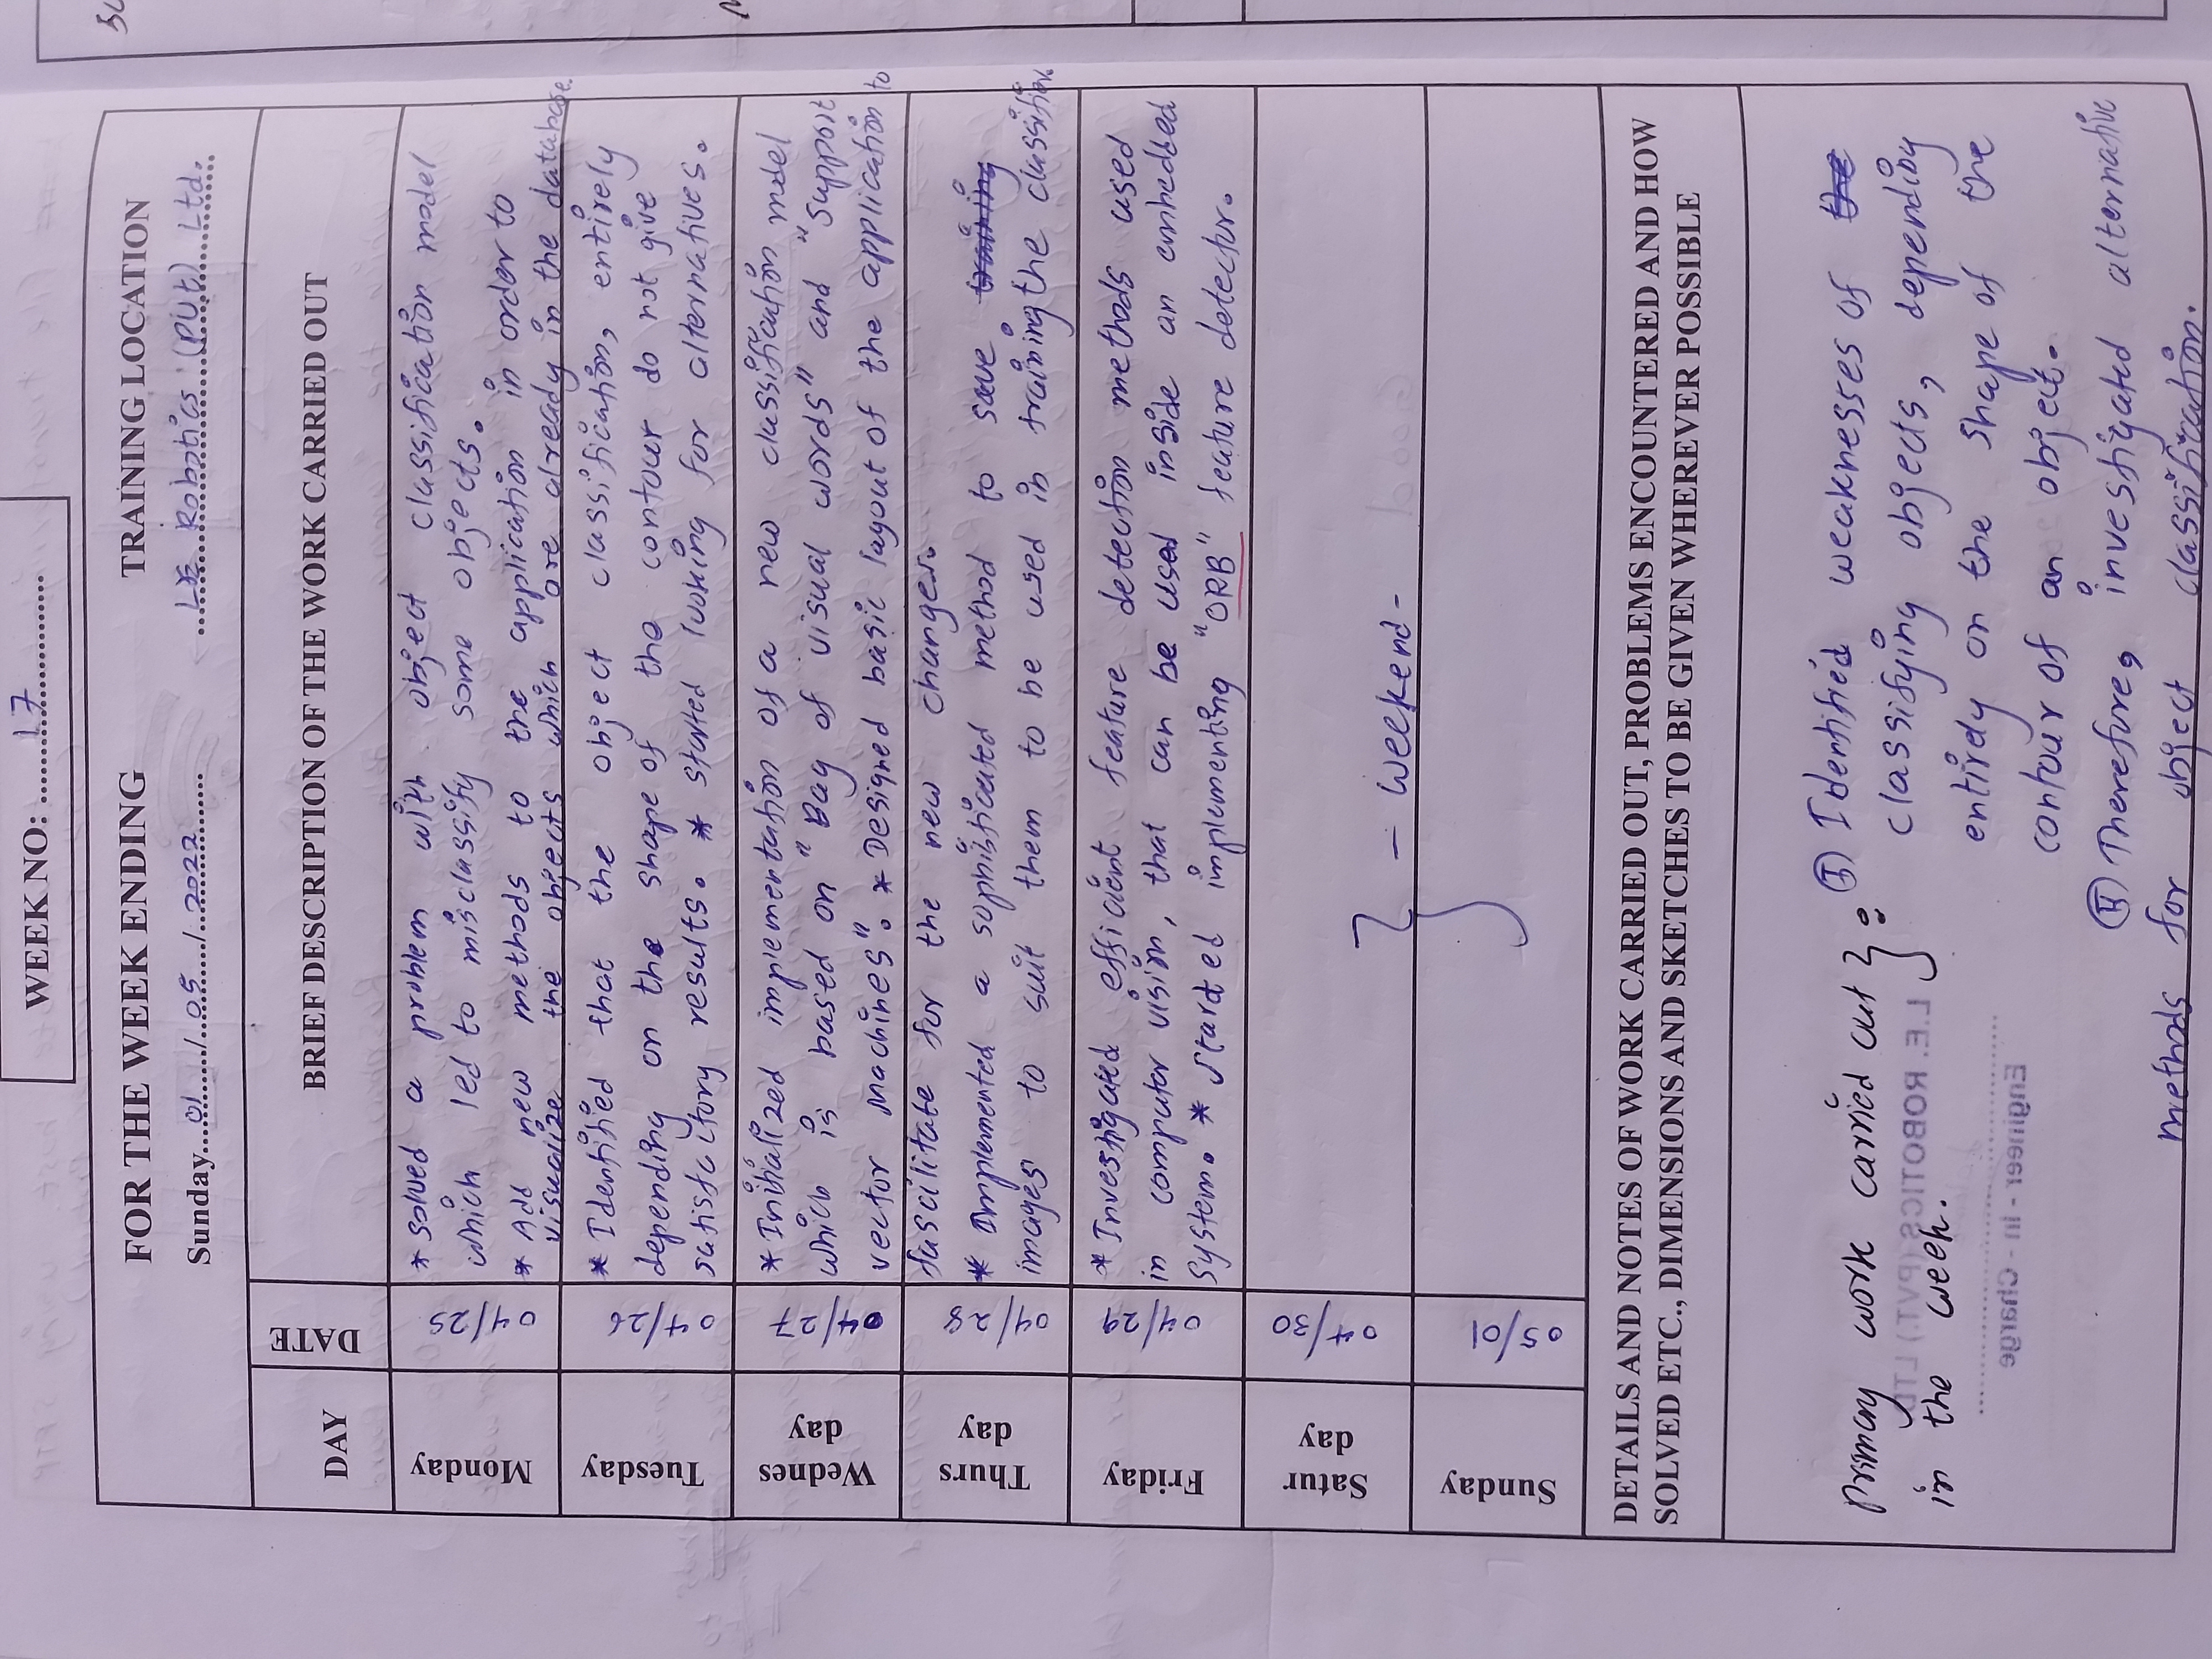 WEEK NO: 17
FOR THE WEEK ENDING
TRAINING LOCATION
Sunday 01/05/2022
LE Robotics (PVt) Ltd.
DAY
DATE
BRIEF DESCRIPTION OF THE WORK CARRIED OUT
Monday
04/25
* solved a problem with object classification model
which led to misclassify some objects.
* Add new methods to the application in order to
visualize the objects which are already in the database.
Tuesday
04/26
* Identified that the object classification, entirely
depending on the shape of the contour do not give
satisfactory results. * started looking for alternatives.
Wednes
day
04/27
* Initialized implementation of a new classification model
which is based on "Bag of visual words" and "Support
vector Machines". * Designed basic layout of the application to
Thurs
day
04/28
fascilitate for the new changes.
* Implemented a sophisticated method to save training
images to suit them to be used in training the classifier.
Friday
04/29
* Investigated efficient feature detection methods used
in computer vision, that can be used inside an embedded
system. * Started implementing "ORB" feature detector.
Satur
day
04/30
- Weekend -
Sunday
05/01
DETAILS AND NOTES OF WORK CARRIED OUT, PROBLEMS ENCOUNTERED AND HOW
SOLVED ETC., DIMENSIONS AND SKETCHES TO BE GIVEN WHEREVER POSSIBLE
Primary work carried out
in the week.
:
(I) Identified weaknesses of the
classifying objects, depending
entirely on the shape of the
contour of an object.
(II) Therefore, investigated alternative
methods for object classification.
L.E. ROBOTICS (PVT.) LTD
Engineer - In - Charge